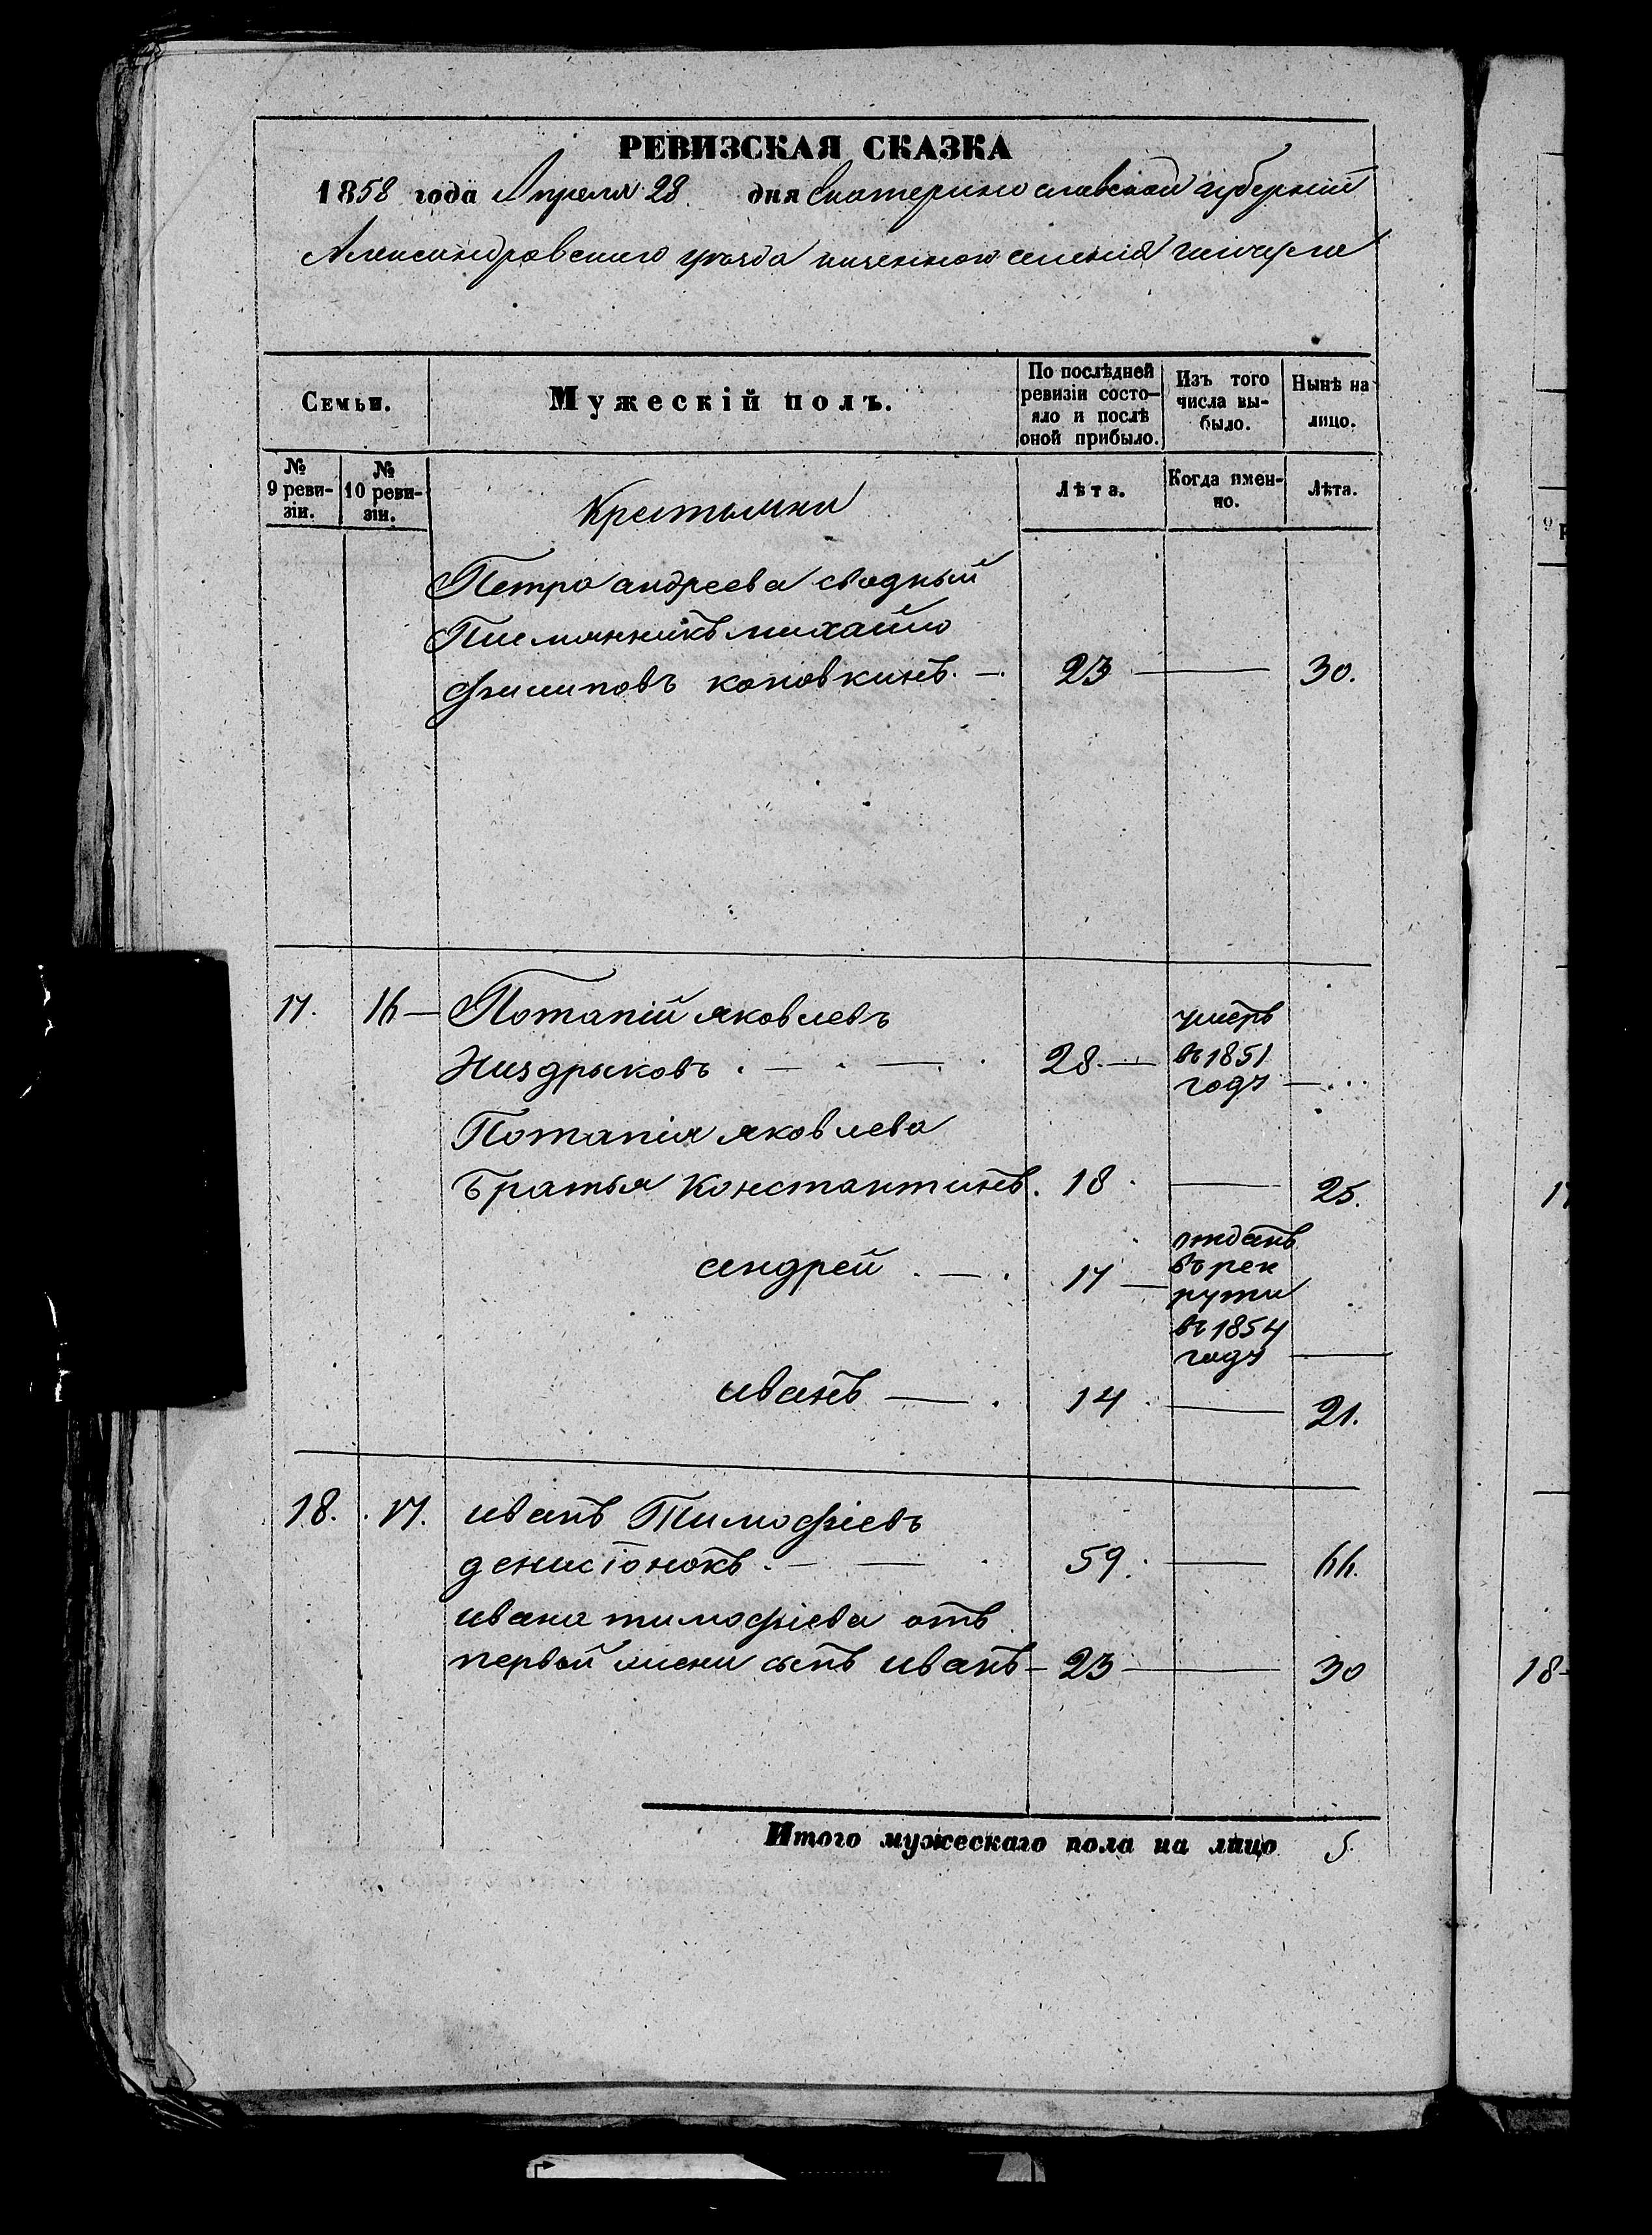 РЕВИЗСКАЯ СКАЗКА
1858 года Апреля 28 дня Екатеринославской губерній
Александровскаго уезда казенного селенія
Семьи.
Мужескій полъ.
По послѣдней ревизіи состо-
яло и послѣ
оной прибыло.
Изъ того
числа вы-
было.
Нынѣ на
лицо.
№
9 реви-
зіи.
№
10 реви-
зіи.
Крестьяни
Лѣта.
Когда имен-
но.
Лѣта.
Петра андреева сводный
Племянникъ михайло
филиповъ коновкинъ. — 23 — 30.
17. 16 — Потапій яковлевъ
Низдрыковъ . — . — . 28. —
умеръ
въ 1851
году —
Потапія яковлева
братья Константинъ. 18 — 25.
андрей . — . 17 —
отданъ
въ рек
рути
въ 1854
году —
иванъ — . 14 . — 21.
18. 17. иванъ Тимофіевъ
денисіонокъ . — — . 59. — 66.
ивана тимофіева отъ
первой жени сынъ иванъ — 23 — 30
Итого мужескаго пола на лицо 5
18